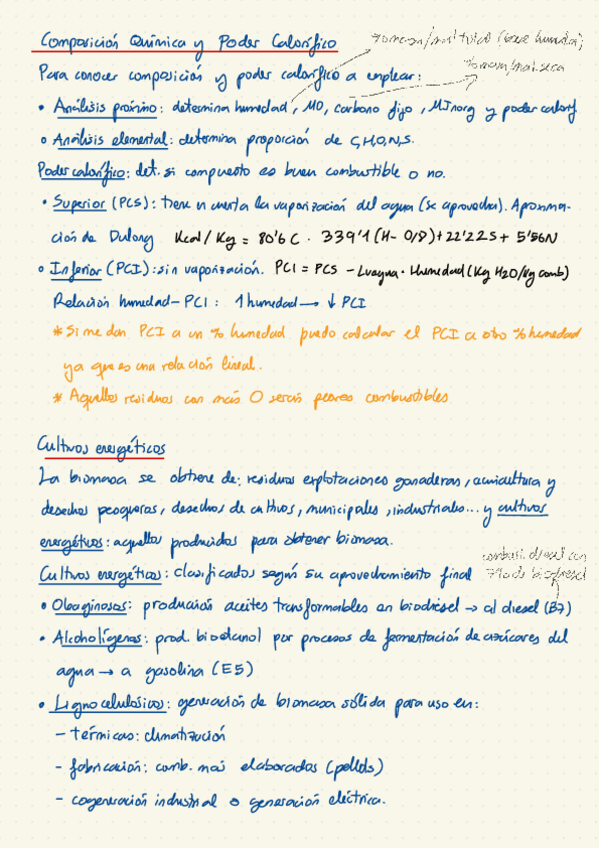 Composición Química y Poder Calorífico
% masa/mat total (base humeda)
% masa/mat. seca
Para conocer composición y poder calorífico a emplear:
• Análisis próximo: determina humedad, MO, carbono fijo, MInorg y poder caloríf
• Análisis elemental: determina proporción de C,H,O,N,S.
Poder calorífico: det. si compuesto es buen combustible o no.
• Superior (PCS): tiene en cuenta la vaporización del agua (se aprovecha). Aproxima-
ción de Dulong Kcal/Kg = 80'6 C · 339'1 (H- O/8)+22'22S+ 5'56N
• Inferior (PCI): sin vaporización. PCI = PCS - Lvagua · Humedad (Kg H2O/Kg comb)
Relación humedad-PCI: ↑humedad → ↓ PCI
* Si me dan PCI a un % humedad puedo calcular el PCI a otro % humedad
ya que es una relación lineal.
* Aquellos residuos con más O serán peores combustibles
Cultivos energéticos
La biomasa se obtiene de: residuos explotaciones ganaderas, acuicultura y
desechos pesqueros, desechos de cultivos, municipales, industriales... y cultivos
energéticos: aquellos producidos para obtener biomasa.
combust. diesel con
7% de biodiesel
Cultivos energéticos: clasificados según su aprovechamiento final
• Oleaginosos: producción aceites transformables en biodiésel → al diesel (B7)
• Alcoholígenos: prod. bioetanol por procesos de fermentación de azúcares del
agua → a gasolina (E5)
• Lignocelulósicos: generación de biomasa sólida para uso en:
- térmicas: climatización
- fabricación: comb. más elaborados (pellets)
- cogeneración industrial o generación eléctrica.